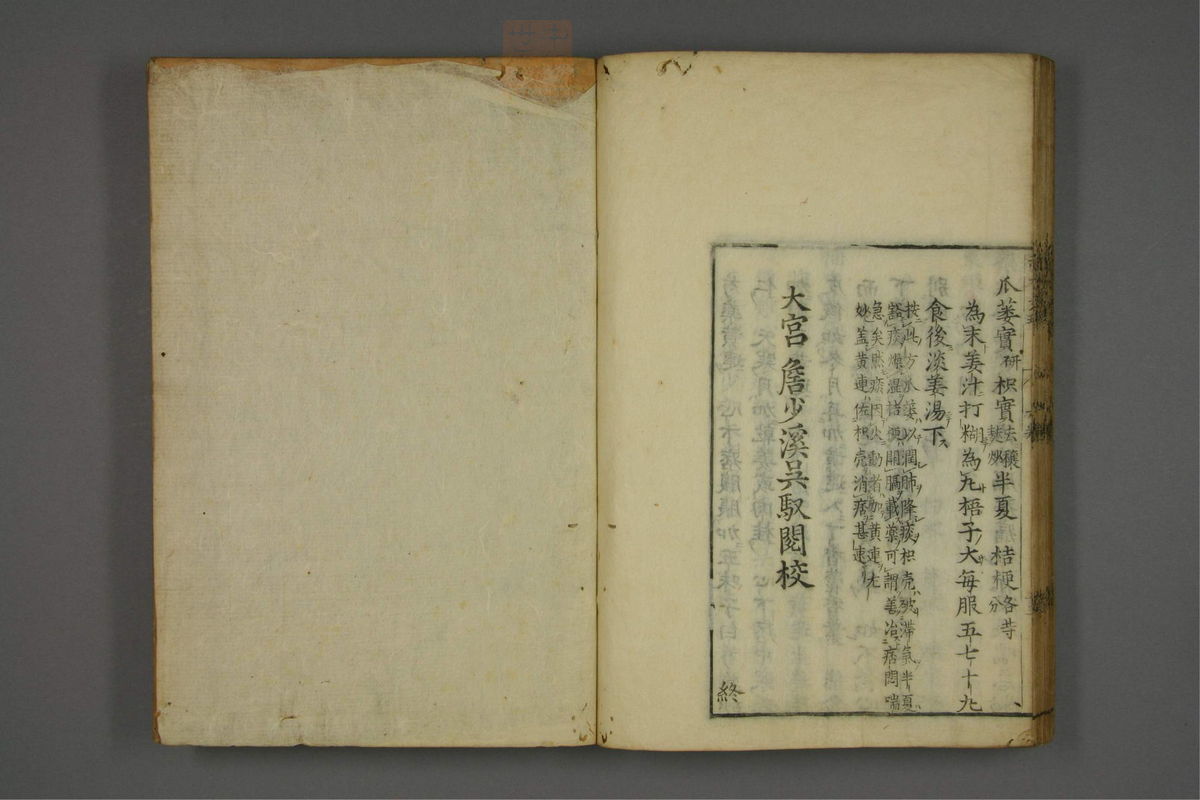 瓜蔞實研枳實去穰麩炒半夏桔梗各等分
為末姜汁打糊為丸梧子大每服五七十丸
食後淡姜湯下
按此方瓜蔞以潤肺降痰枳壳破滯氣半夏
豁痰燥濕桔梗開膈載藥可謂善治痞悶喘
急矣然痰因火動者加黃連尤
妙盖黃連佐枳壳消痞甚速
大宮詹少溪吳馭閱校
終